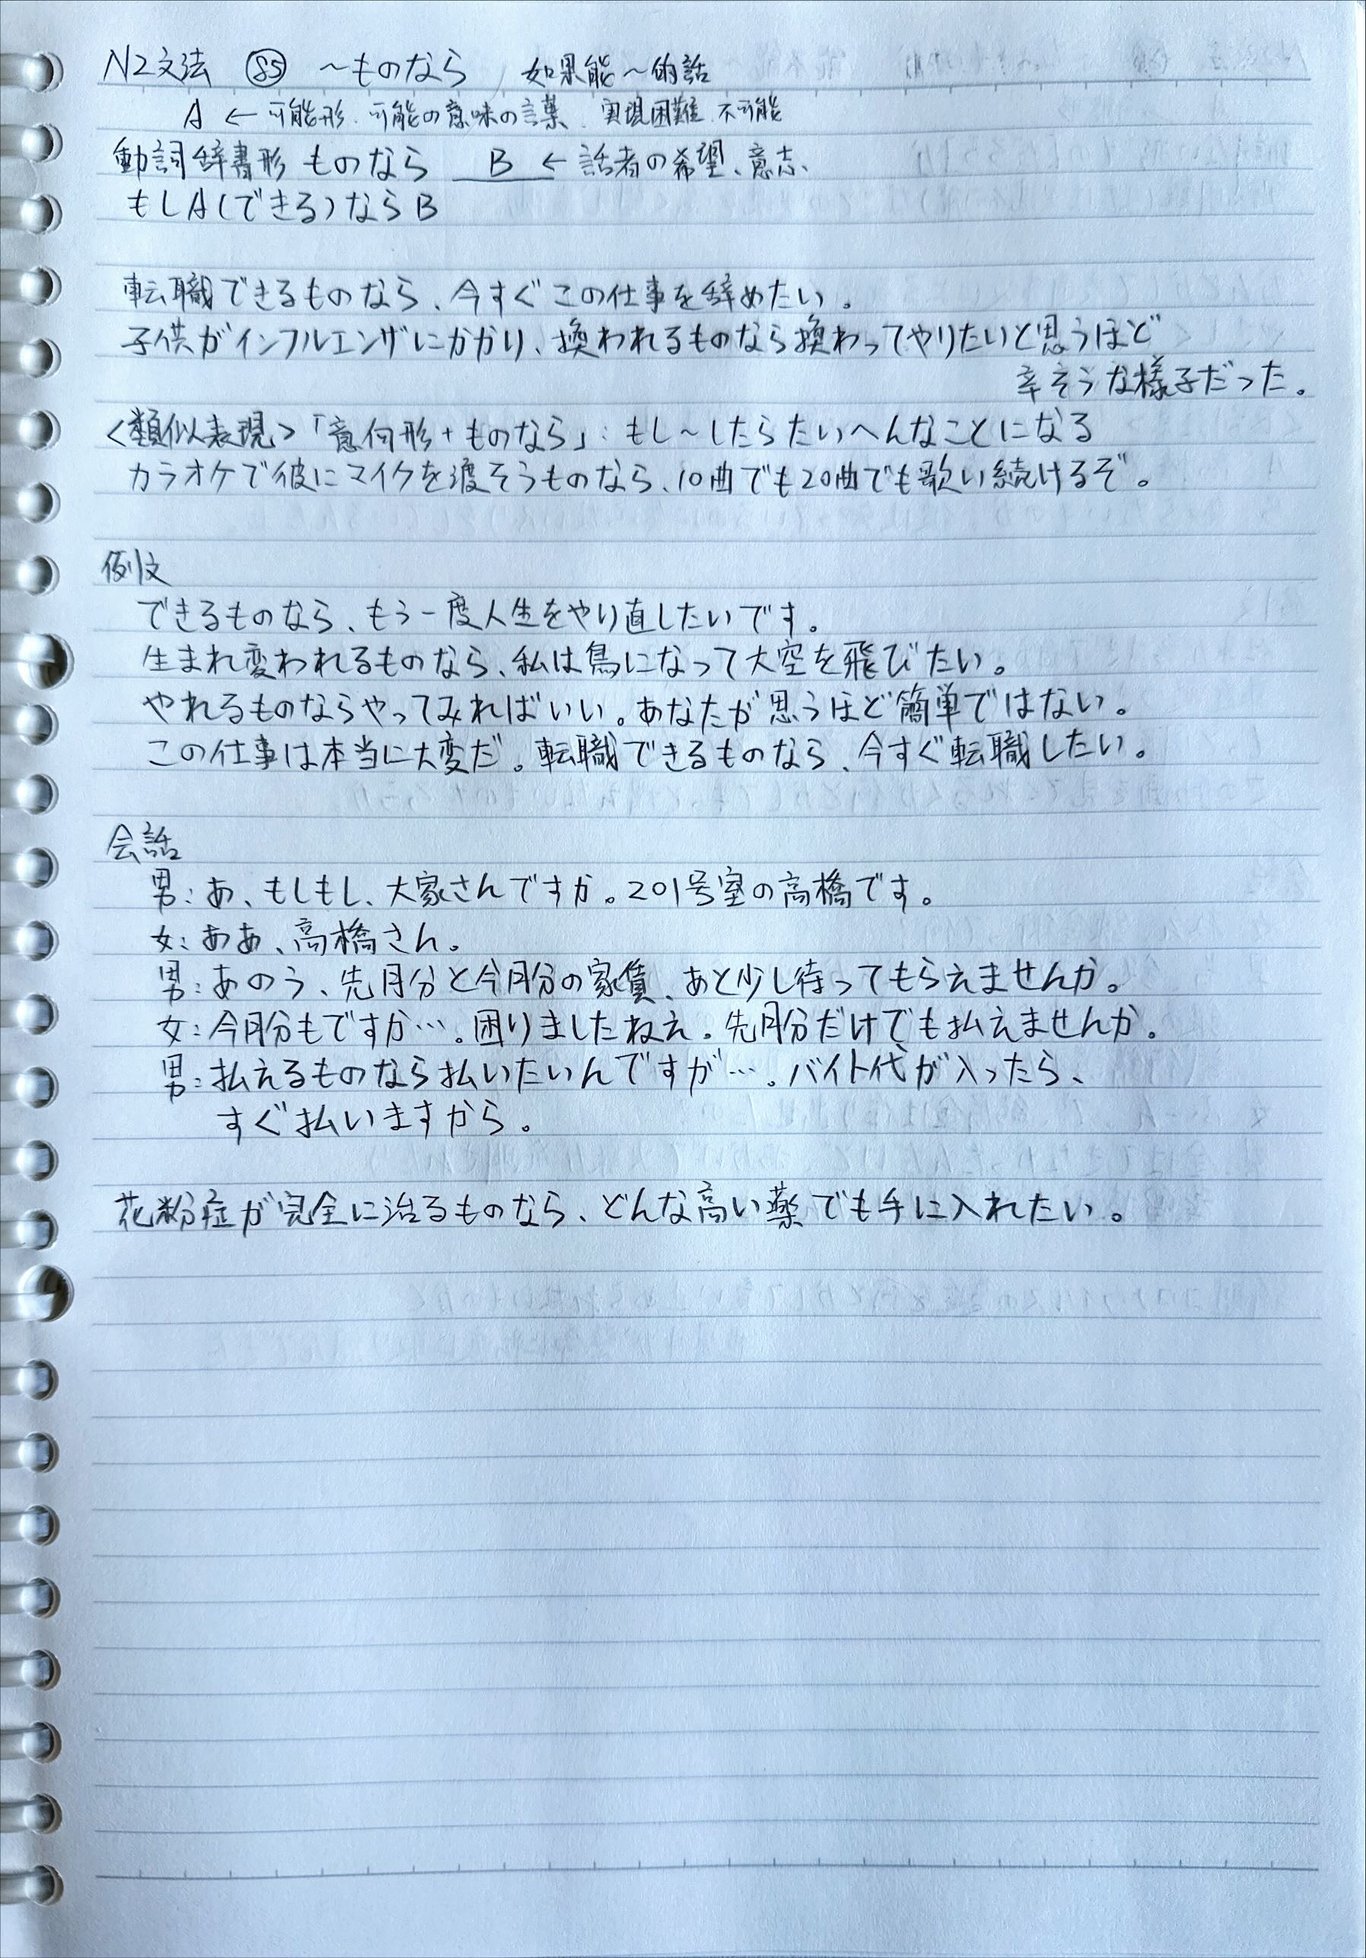 N2文法 85 〜ものなら 如果能〜的話
A ← 可能形、可能の意味の言葉、実現困難、不可能
動詞辞書形 ものなら B ← 話者の希望、意志、
もしA(できる)ならB
転職できるものなら、今すぐこの仕事を辞めたい。
子供がインフルエンザにかかり、換われるものなら換わってやりたいと思うほど
辛そうな様子だった。
<類似表現>「意向形+ものなら」:もし〜したらたいへんなことになる
カラオケで彼にマイクを渡そうものなら、10曲でも20曲でも歌い続けるぞ。
例文
できるものなら、もう一度人生をやり直したいです。
生まれ変われるものなら、私は鳥になって大空を飛びたい。
やれるものならやってみればいい。あなたが思うほど簡単ではない。
この仕事は本当に大変だ。転職できるものなら、今すぐ転職したい。
会話
男:あ、もしもし、大家さんですか。201号室の高橋です。
女:ああ、高橋さん。
男:あのう、先月分と今月分の家賃、あと少し待ってもらえませんか。
女:今月分もですか…。困りましたねえ。先月分だけでも払えませんか。
男:払えるものなら払いたいんですが…。バイト代が入ったら、
すぐ払いますから。
花粉症が完全に治るものなら、どんな高い薬でも手に入れたい。